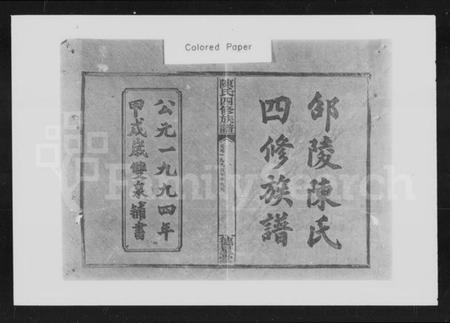 Colored Paper
邵陵陳氏
四修族譜
陳氏四修族譜
公元一九九四年
甲戌歲雙泉補書
FamilySearch